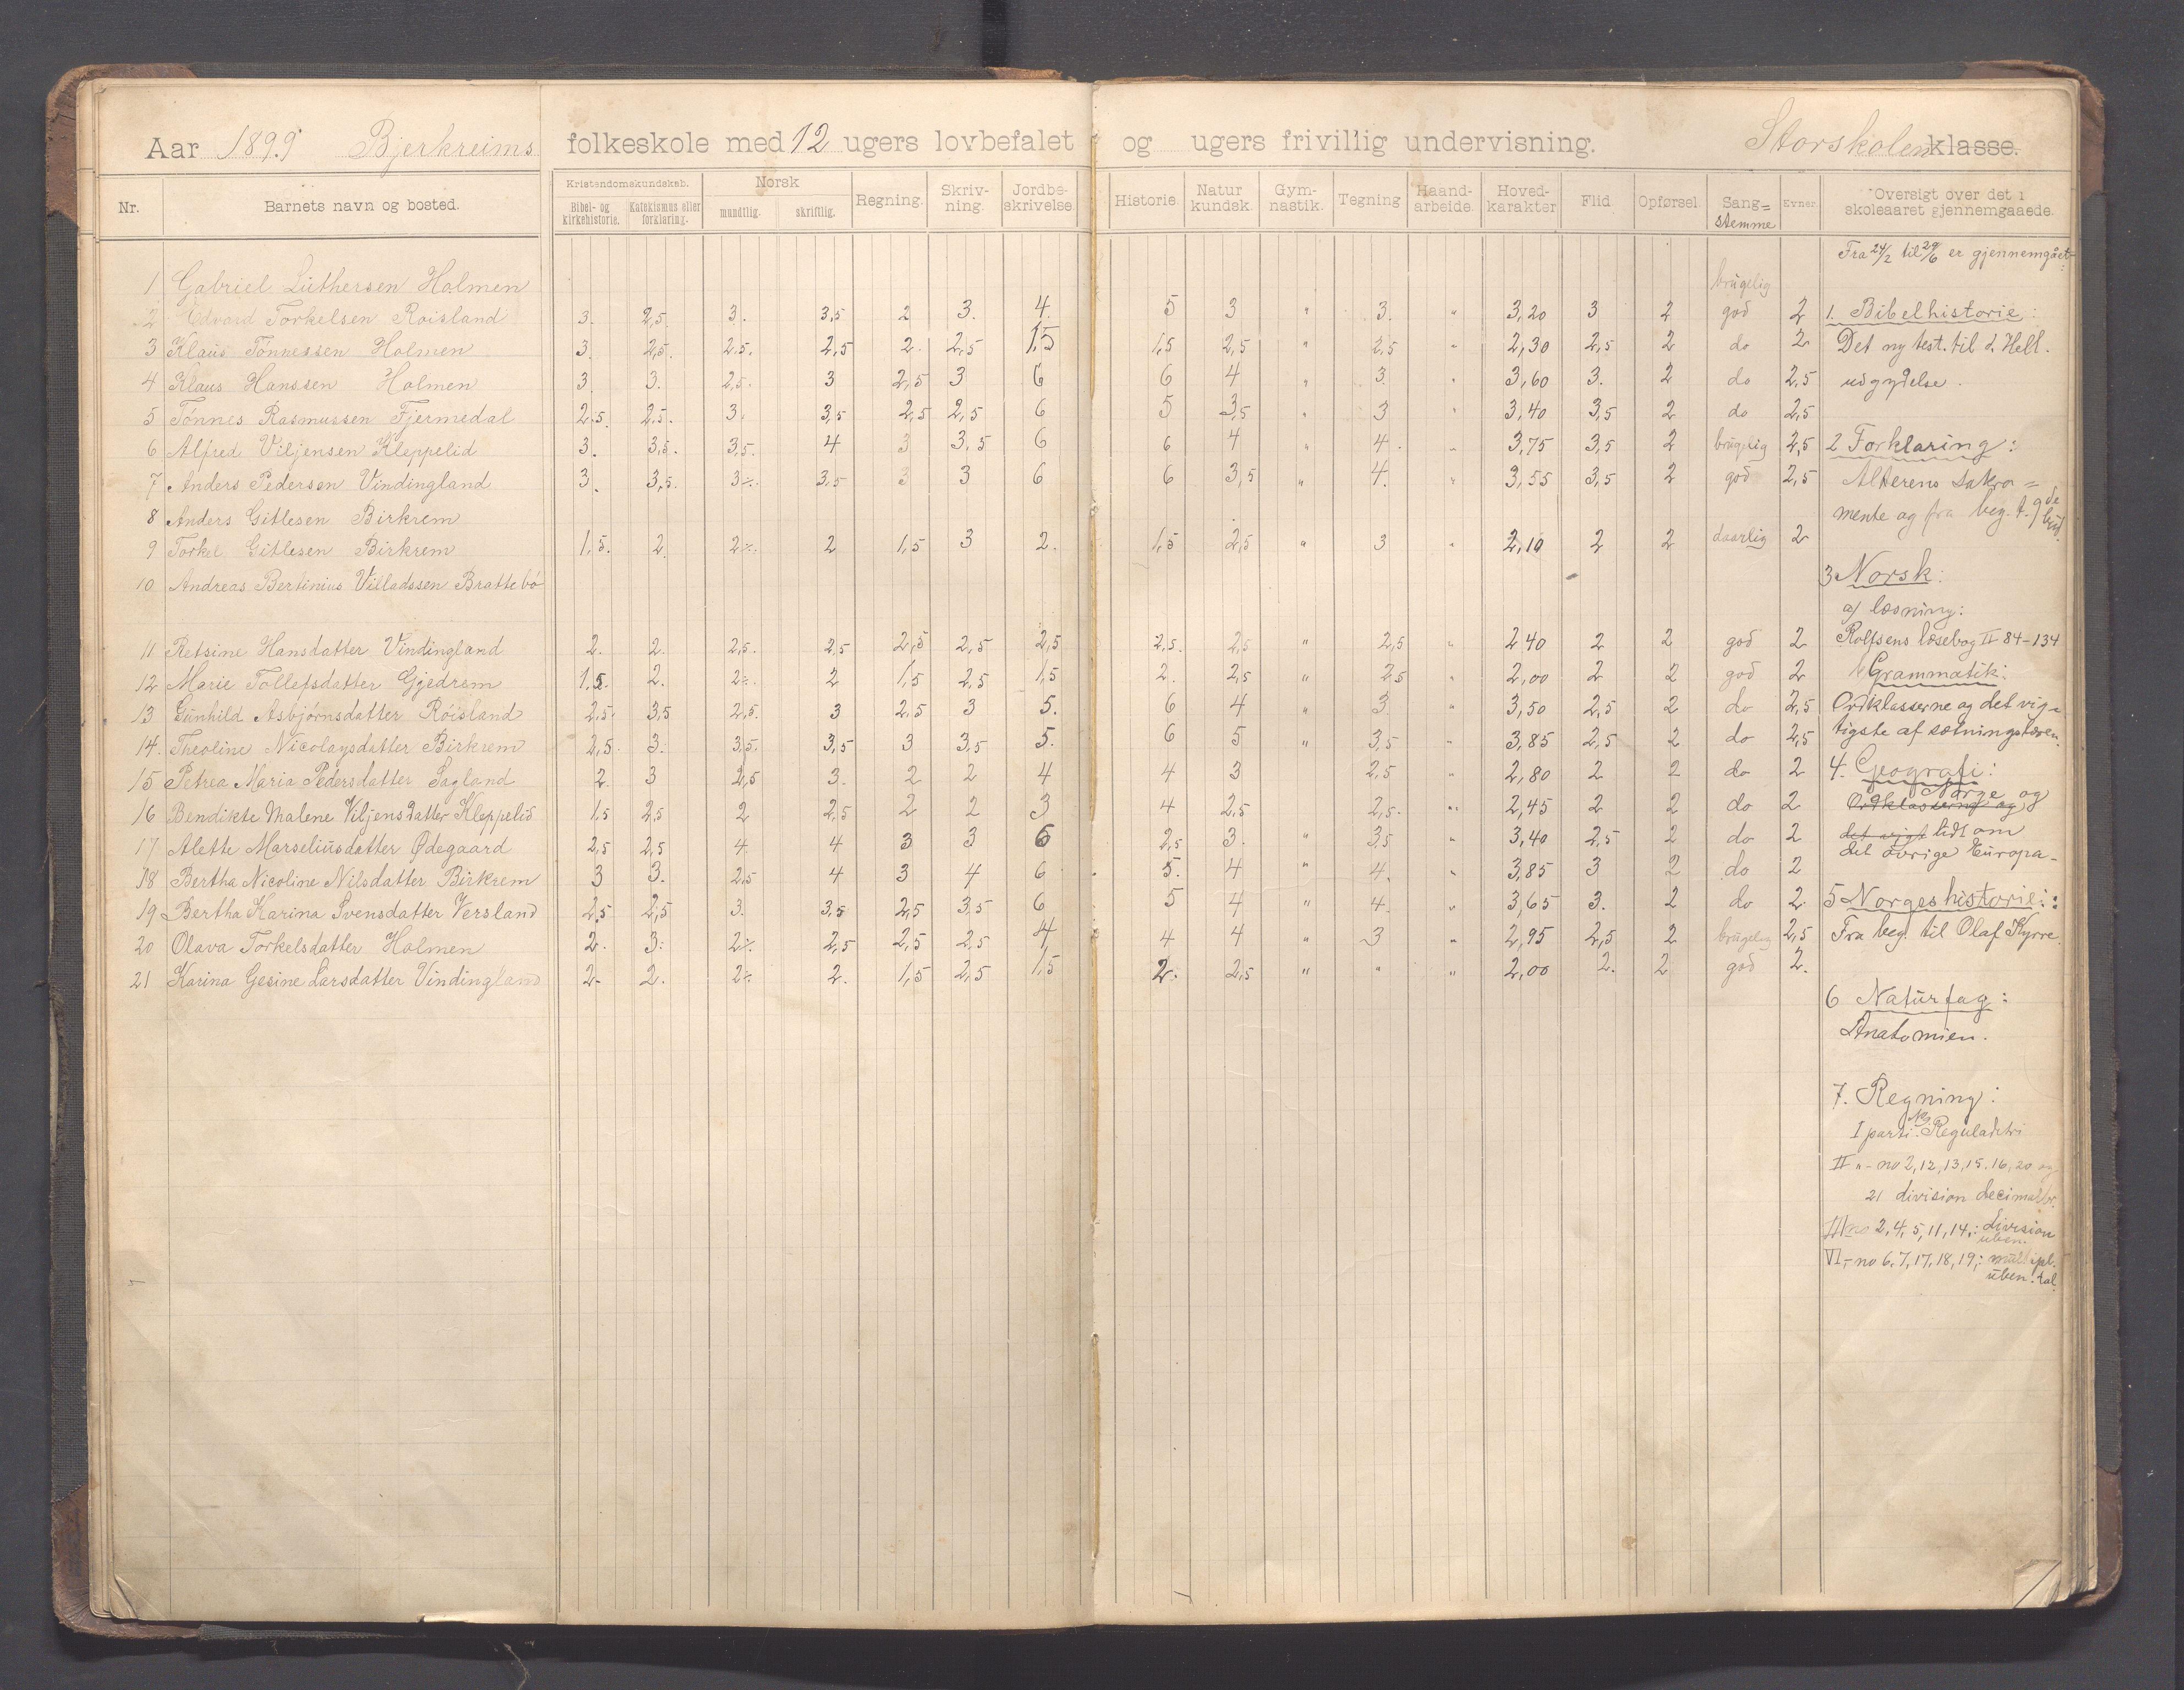 Aar 1899 Bjerkreims folkeskole med 12 ugers lovbefalet og ugers frivillig undervisning. Storskolen klasse.
Nr. Barnets navn og bosted. Kristendomskundskab. Bibel- og kirkehistorie. Katekismus eller forklaring. Norsk mundtlig. skriftlig. Regning. Skriv-ning. Jordbe-skrivelse. Historie. Natur kundsk. Gym-nastik. Tegning Haand-arbeide. Hoved-karakter Flid. Opførsel. Sang= stemme Evner. Oversigt over det i skoleaaret gjennemgaaede.
1 Gabriel Luthersen Holmen brugelig
2 Edvard Torkelsen Roisland 3. 2,5. 3. 3,5 2 3. 4. 5 3 " 3. " 3,20 3 2 god 2
3 Klaus Tønnessen Holmen 3. 2,5. 2,5. 2,5 2. 2,5 1,5 1,5 2,5 " 2,5 " 2,30 2,5 2 do 2
4 Klaus Hanssen Holmen 3. 3. 2,5. 3 2,5 3 6 6 4 " 3. " 3,60 3. 2 do 2,5
5 Tönnes Rasmussen Fjermedal 2,5. 2,5. 3. 3,5 2,5 2,5 6 5 3,5 " 3 " 3,40 3,5 2 do 2,5
6 Alfred Viljensen Kleppelid 3. 3,5. 3,5. 4 3 3,5 6 6 4 " 4. " 3,75 3,5 2 brugelig 2,5
7 Anders Pedersen Vindingland 3. 3,5. 3%. 3,5 3 3 6 6 3,5 " 4. " 3,55 3,5 2 god 2,5
8 Anders Gitlesen Birkrem
9 Torkel Gitlesen Birkrem 1,5. 2. 2%. 2 1,5 3 2. 1,5 2,5 " 3 " 2,10 2 2 daarlig 2
10 Andreas Bertinius Villadssen Brattebö
11 Retsine Hansdatter Vindingland 2. 2. 2,5. 2,5 2,5 2,5 2,5 2,5. 2,5 " 2,5 " 2 40 2 2 god 2
12 Marie Tollefsdatter Gjedrem 1,5. 2. 2%. 2 1,5 2,5 1,5 2. 2,5 " 2,5 " 2,00 2 2 god 2
13 Gunhild Asbjørnsdatter Röisland 2,5. 3,5 2,5. 3 2,5 3 5. 6 4 " 3. " 3,50 2,5 2 do 2,5
14. Theoline Nicolaysdatter Birkrem 2,5. 3. 3,5. 3,5 3 3,5 5. 6 5 " 3,5 " 3,85 2,5 2 do 2,5
15 Petrea Maria Pedersdatter Sagland 2. 3 2,5 3. 2 2 4 4 3 " 2,5 " 2,80 2 2 do 2
16 Bendikte Malene Viljensdatter Kleppelid 1,5 2,5 2 2,5 2 2 3 4 2,5 " 2,5. " 2,45 2 2 do 2
17 Alette Marseliusdatter Ødegaard 2,5 2,5 4. 4 3 3 6 2,5 3. " 3,5 " 3,40 2,5 2 do 2
18 Bertha Nicoline Nilsdatter Birkrem 3 3. 2,5 4 3 4 6 5. 4 " 4. " 3,85 3 2 do 2
19 Bertha Karina Svensdatter Versland 2,5 2,5 3. 3,5 2,5 3,5 6 5 4 " 4. " 3,65 3. 2 do 2
20 Olava Torkelsdatter Holmen 2. 3. 2%. 2,5 2,5 2,5 4 4 4 " 3 " 2,95 2,5 2 brugelig 2,5
21 Karina Gesine Larsdatter Vindingland 2. 2. 2%. 2. 1,5 2,5 1,5 2. 2,5 " " " 2,00 2. 2 god 2.
Fra 24/2 til 29/6 er gjennemgået:
1. Bibelhistorie:
Det ny test. til d. Hell.
udgydelse.
2 Forklaring:
Alterens sakra=
mente og fra beg. t. 9de bud.
3 Norsk:
a/ læsning:
Rolfsens læsebog II 84-134
Grammatik:
Ordklasserne og det vig-
tigste af sætningslæren.
4. Geografi:
Norge og
Ordklasserne og
det vigt lidt om
det övrige Europa-
5 Norgeshistorie:
Fra beg. til Olaf Kyrre.
6 Naturfag:
Anatomien.
7. Regning:
I parti Reguladetri
II "- no 2, 12, 13, 15, 16, 20 og
21 division decimalbr.
III no 2, 4, 5, 11, 14,: division
uben.
VI,- no 6, 7, 17, 18, 19,: multipl.
uben. tal